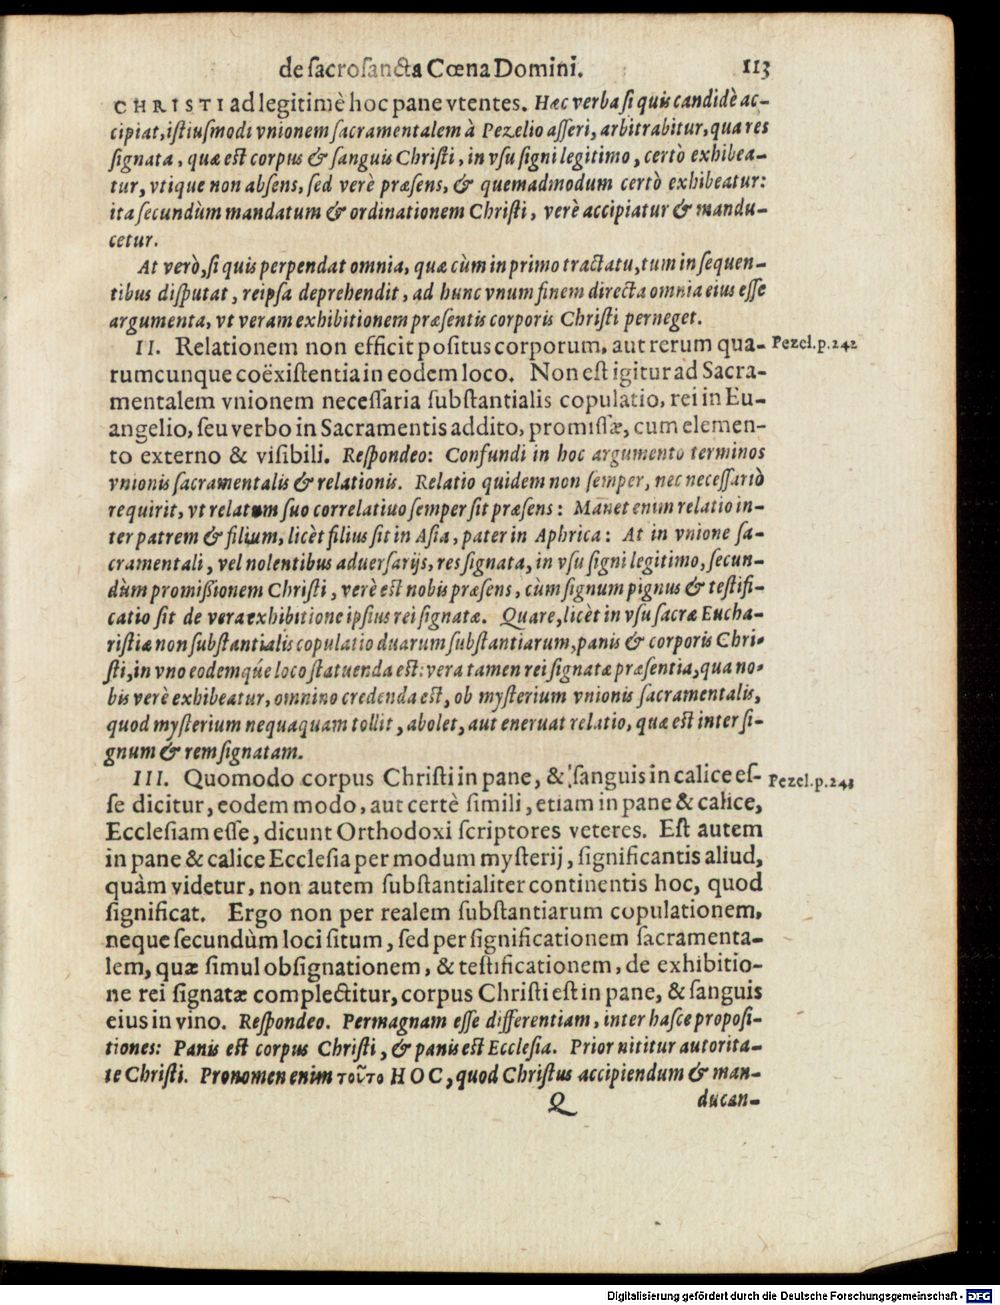 de sacrosancta Cœna Domini. 113
CHRISTI ad legitimè hoc pane vtentes. Hæc verba si quis candidè ac-
cipiat, istiusmodi vnionem sacramentalem à Pezelio asseri, arbitrabitur, qua res
signata, quæ est corpus & sanguis Christi, in vsu signi legitimo, certò exhibea-
tur, vtique non absens, sed verè præsens, & quemadmodum certò exhibeatur:
ita secundùm mandatum & ordinationem Christi, verè accipiatur & mandu-
cetur.
At verò, si quis perpendat omnia, quæ cùm in primo tractatu, tum in sequen-
tibus disputat, reipsa deprehendit, ad hunc vnum finem directa omnia eius esse
argumenta, vt veram exhibitionem præsentis corporis Christi perneget.
II. Relationem non efficit positus corporum, aut rerum qua- Pezel.p.242
rumcunque coëxistentia in eodem loco. Non est igitur ad Sacra-
mentalem vnionem necessaria substantialis copulatio, rei in Eu-
angelio, seu verbo in Sacramentis addito, promissæ, cum elemen-
to externo & visibili. Respondeo: Confundi in hoc argumento terminos
vnionis sacramentalis & relationis. Relatio quidem non semper, nec necessariò
requirit, vt relatum suo correlatiuo semper sit præsens: Manet enim relatio in-
ter patrem & filium, licèt filius sit in Asia, pater in Aphrica: At in vnione sa-
cramentali, vel nolentibus aduersarijs, res signata, in vsu signi legitimo, secun-
dùm promißionem Christi, verè est nobis præsens, cùm signum pignus & testifi-
catio sit de vera exhibitione ipsius rei signatæ. Quare, licèt in vsu sacræ Eucha-
ristiæ non substantialis copulatio duarum substantiarum, panis & corporis Chri-
sti, in vno eodemq́ue loco statuenda est: vera tamen rei signatæ præsentia, qua no-
bis verè exhibeatur, omnino credenda est, ob mysterium vnionis sacramentalis,
quod mysterium nequaquam tollit, abolet, aut eneruat relatio, quæ est inter si-
gnum & rem signatam.
III. Quomodo corpus Christi in pane, & sanguis in calice es- Pezel.p.243
se dicitur, eodem modo, aut certè simili, etiam in pane & calice,
Ecclesiam esse, dicunt Orthodoxi scriptores veteres. Est autem
in pane & calice Ecclesia per modum mysterij, significantis aliud,
quàm videtur, non autem substantialiter continentis hoc, quod
significat. Ergo non per realem substantiarum copulationem,
neque secundùm loci situm, sed per significationem sacramenta-
lem, quæ simul obsignationem, & testificationem, de exhibitio-
ne rei signatæ complectitur, corpus Christi est in pane, & sanguis
eius in vino. Respondeo. Permagnam esse differentiam, inter hasce proposi-
tiones: Panis est corpus Christi, & panis est Ecclesia. Prior nititur autorita-
te Christi. Pronomen enim τοῦτο HOC, quod Christus accipiendum & man-
Q ducan-
Digitalisierung gefördert durch die Deutsche Forschungsgemeinschaft - DFG